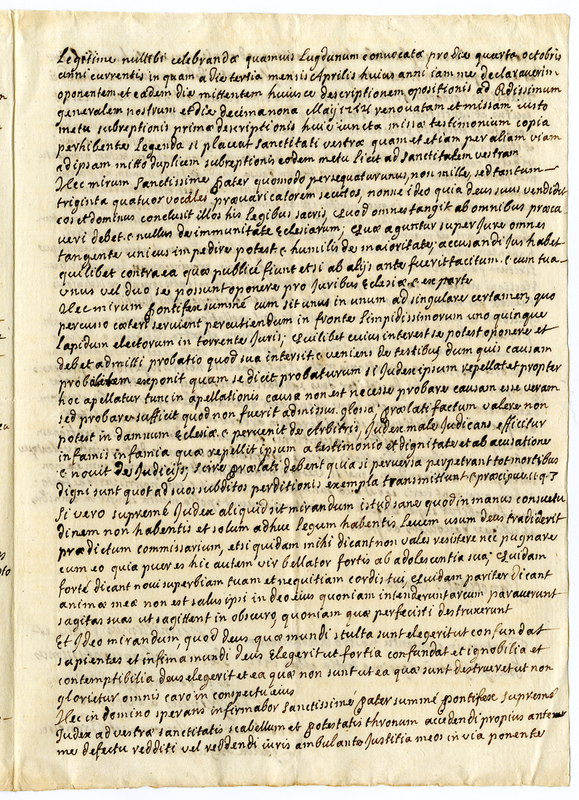 Legitime nullibi celebrandæ quamuis Lugdunum convocatæ pro die quarta octobris
anni currentis in quam a die tertia mensis Aprilis huius anni iam me declaraverim
oponentem et eadem die mittentem huiusce descriptionem opositionis ad Rdissimum
generalem nostrum et die decimanona Maij renovatam et missam iusto
metu subreptionis primæ descriptionis huic iuncta missæ testimonium copia
perhibente Legenda si placeat sanctitati vestræ quam et etiam per aliam viam
ad ipsam mitto duplicem subreptionis eodem metu licet ad sanctitatem vestram
Nec mirum Sanctissime Pater quomodo persequatur unus, non mille, sed tantum
triginta quatuor vocales prævaricatorem secutos, nonne ideo quia deus suus vendidit
eos et dominus conclusit illos his legibus sacris, Quod omnes tangit ab omnibus præca
veri debet c nullus de immunitate Eclesiarum; Quæ aguntur super iure omnes
tangente unicus impedire potest c humilis de maioritate; accusandi Jus habet
quilibet contra ea quæ publicé fiunt etsi ab alijs ante fuerit tacitum c cum tua
Unus vel duo se possunt oponere pro Juribus Eclesiæ c ex parte
Nec mirum Pontifex summé cum sit unus in unum ad singulare certamen, quo
percusso cæteri servient percutiendum in fronte Limpidissimorum uno quinque
Lapidum electorum in torrente Juris; Cuilibet cuius interest se potest oponere et
debet admitti probatio quod sua intersit c veniens de testibus dum quis causam
probabilem exponit quam se dicit probaturum si Judex ipsum repellat et propter
hoc apellatur tunc in apellationis causa non est necesse probare causam esse veram
sed probare sufficit quod non fuerit admissus glosa, prælati factum valere non
potest in damnum Eclesiæ c pervenit de Arbitris, Judex male Judicans efficitur
infamis infamia quæ repellit ipsum a testimonio et dignitate et ab acusatione
c novit de Judicijs, scire prælati debent quia si perversa perpetrant tot mortibus
digni sunt quot ad suos subditos perditionis exempla transmittunt c præcipue 11 q. 3
Si vero supremé Judex aliquid sit mirandum istud sane quod in manus consuetu
dinem non habentis et solum adhuc Legum habentis Levem usum deus tradiderit
prædictum commissarium, etsi quidam mihi dicant non vales resistere nec pugnare
cum eo quia puer es hic autem vir bellator fortis ab adolescentia sua; Quidam
forté dicant novi superbiam tuam et nequitiam cordis tui, Quidam pariter dicant
animæ meæ non est salus ipsi in deo eius quoniam intenderunt arcum paraverunt
sagitas suas ut sagittent in obscuro, quoniam quæ perfecisti destruxerunt
Et Ideo mirandum, quod deus quæ mundi stulta sunt elegerit ut confundat
sapientes et infima mundi deus Elegerit ut fortia confundat et ignobilia et
contemptibilia deus elegerit et ea quæ non sunt ut ea quæ sunt destrueret ut non
glorietur omnis caro in conspectu eius
Nec in domino sperans infirmabor sanctissimé Pater summé Pontifex supremé
Judex ad vestræ sanctitatis scabellum et potestatis thronum accedendi propius ante
me defectu redditi vel reddendi iuris ambulante Justitia meos in via ponente